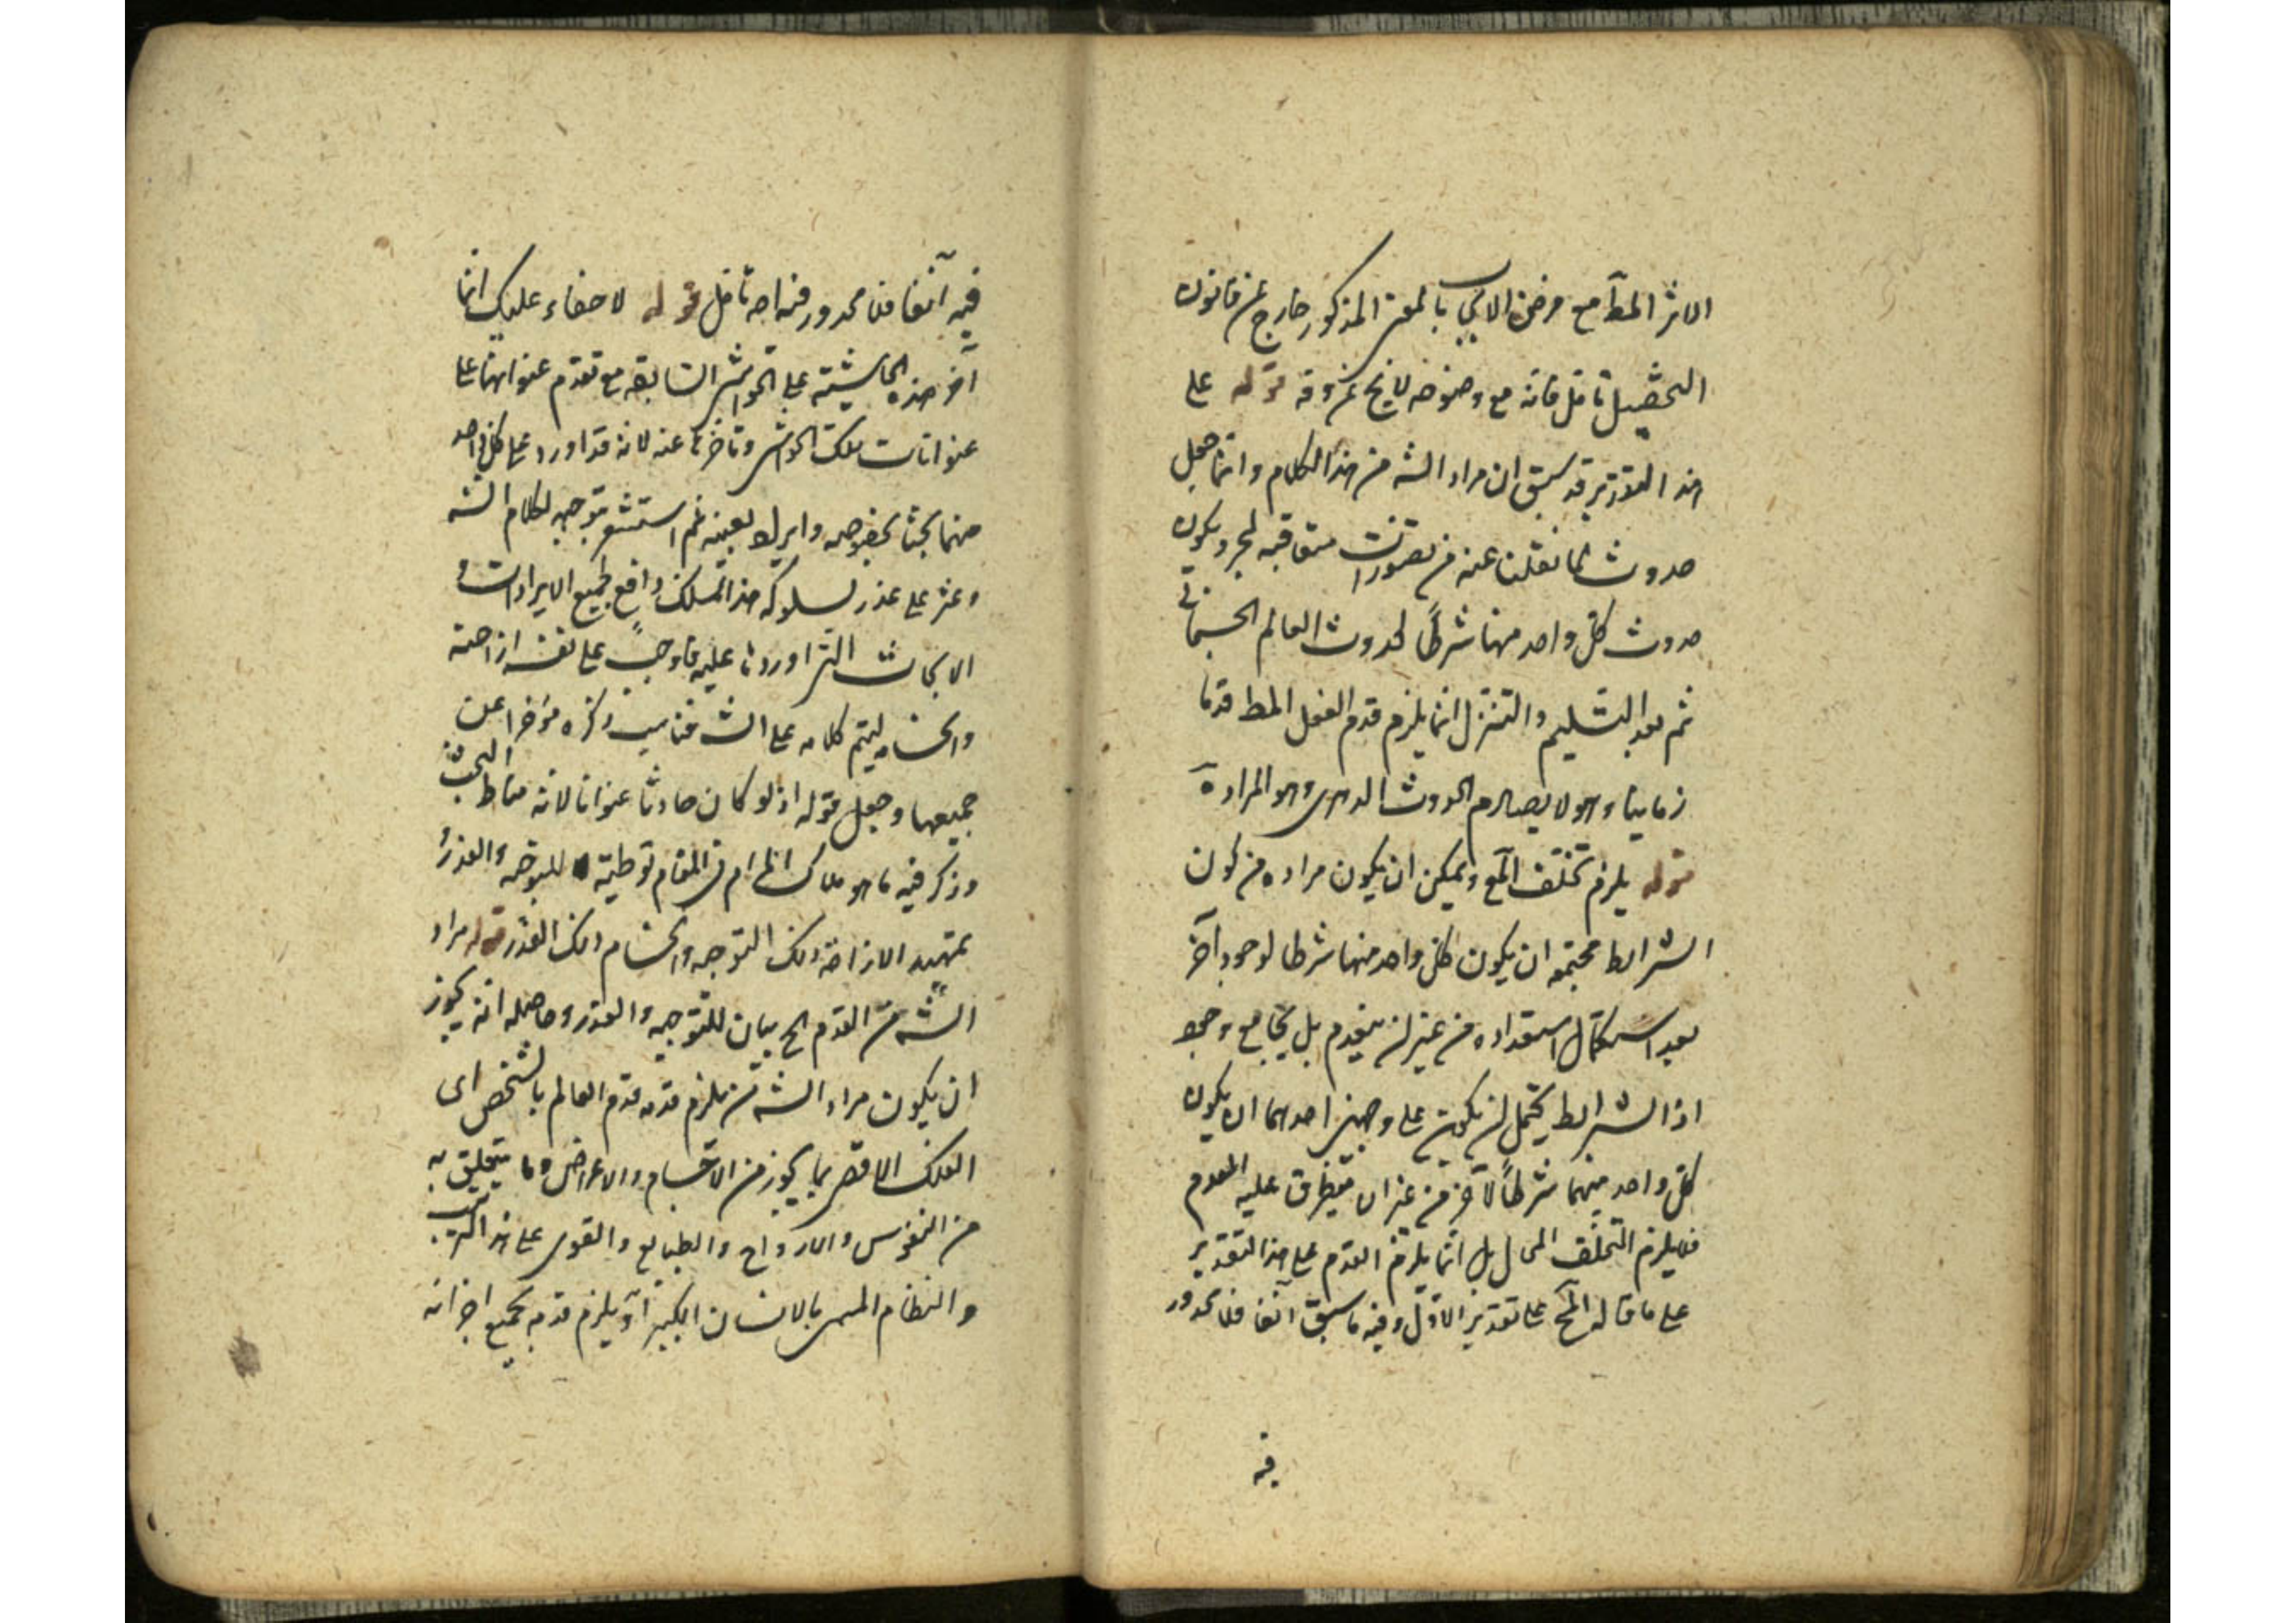 الاثر المط مع فرض الايجاب بالمعنى المذكور خارج عن قانون
التحصيل تامل فانه مع وضوحه لا يخ عن وقة قوله على
هذا التقدير قد سبق ان مراد الشه من هذا الكلام وانما جعل
حدوث لما نقلنا عنه من تصورات متعاقبة لمجرد يكون
حدوث كل واحد منها شرطاً لحدوث العالم الجسمانى
ثم بعد التسليم والتنزل انما يلزم قدم الفعل المط قدما
زمانيا وهو لا يصادم الحدوث الدهرى وهو المراد ه
قوله يلزم تخلف المع ويمكن ان يكون مراده من كون
الشرايط مجتمعه ان يكون كل واحد منها شرطا لوجود آخر
بعد استكمال استعداده من غير ان ينعدم بل يجامع وجوده
اذ الشرايط يحتمل ان يكون على وجهين احدهما ان يكون
كل واحد منهما شرطاً لآخر من غير ان يتطرق عليه المعدوم
فلا يلزم التخلف المحال بل انما يلزم القدم على هذا التقدير
على ما قاله المح على تقدير الاول وفيه ما سبق آنفا فلا محذور
فيه
فيه آنفا فلا محذور فيه اصه تامل قوله لا خفاء عليك انما
آخر هذه الحاشية على الحواشى السابقه مع تقدم عنوانها على
عنوانات تلك الحواشى وتاخرها عنه لانه قد اورد على كل واحد
منهما بحثا بخصوصه وايراد بعينه ثم استشعر بتوجيه لكلام الشه
وعثر على عذر لسلوكه هذا المسلك دافع لجميع الايرادات و
الابحاث التى اوردها عليه فاوجب على نفسه ازاحته
وانحسامه ليتم كلامه على الشه فناسب ذكره مؤخرا عن
جميعها وجعل قوله اذ لو كان حادثا عنوانا لانه مناط البحث
وذكر فيه ما هو ملاك المرام فى المقام توطية للتوجيه والعذر و
تمهيد الازاحة ذلك التوجيه وانحسام ذلك العذر قوله مراد
الشه من القدم الخ بيان للتوجيه والعذر وحاصله انه يجوز
ان يكون مراد الشه من يلزم قدمه قدم العالم بالشخص اى
الفلك الاقصى بما يحوز من الاجسام والاعراض وما يتعلق به
من النفوس والارواح والطبايع والقوى على هذا الترتيب
والنظام المسمى بالانسان الكبير او يلزم قدمه بجميع اجزائه